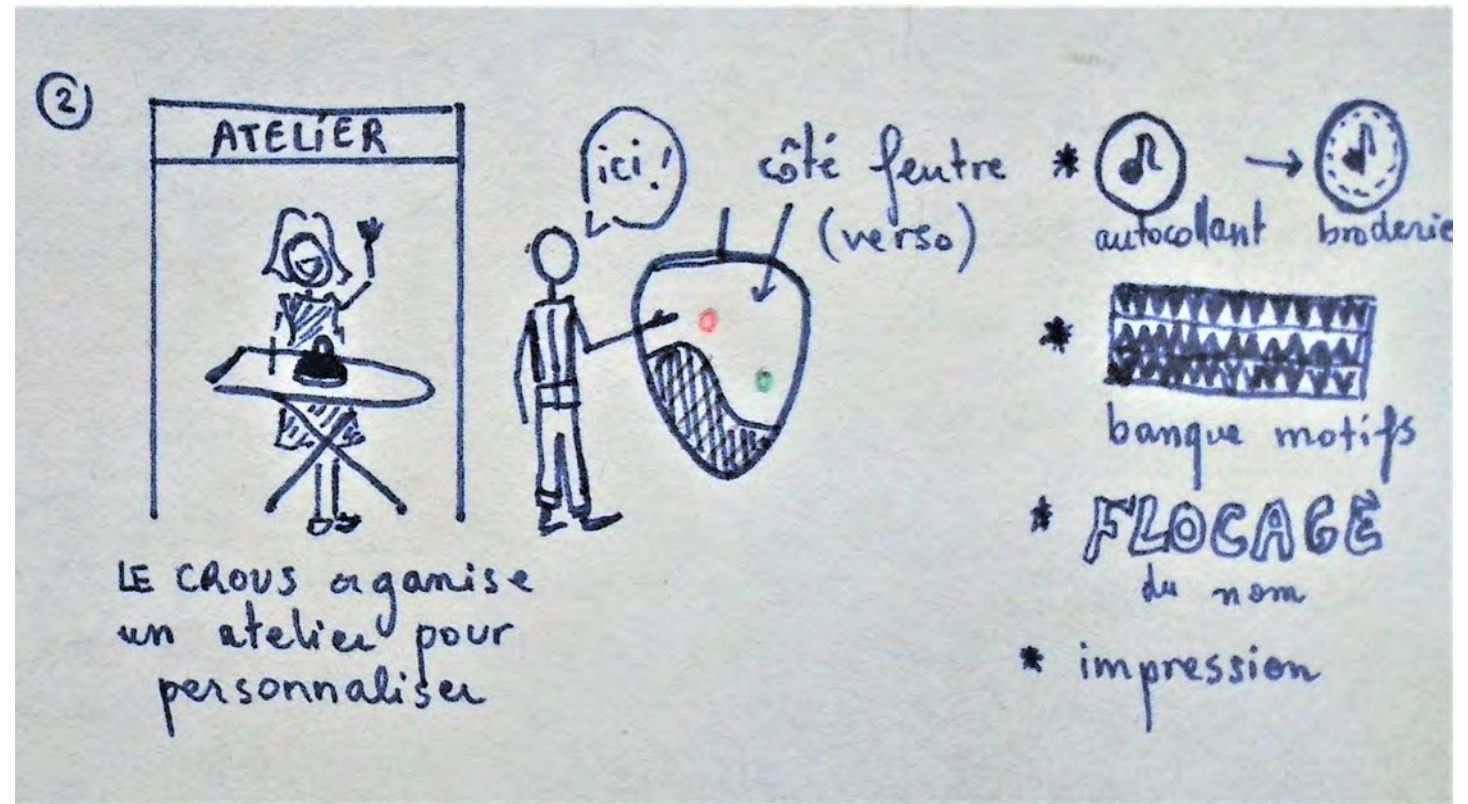 2
ATELIER
ici!
côté feutre
(verso)
* autocollant → broderie
* banque motifs
* FLOCAGE
du nom
* impression
LE CROUS organise
un atelier pour
personnaliser